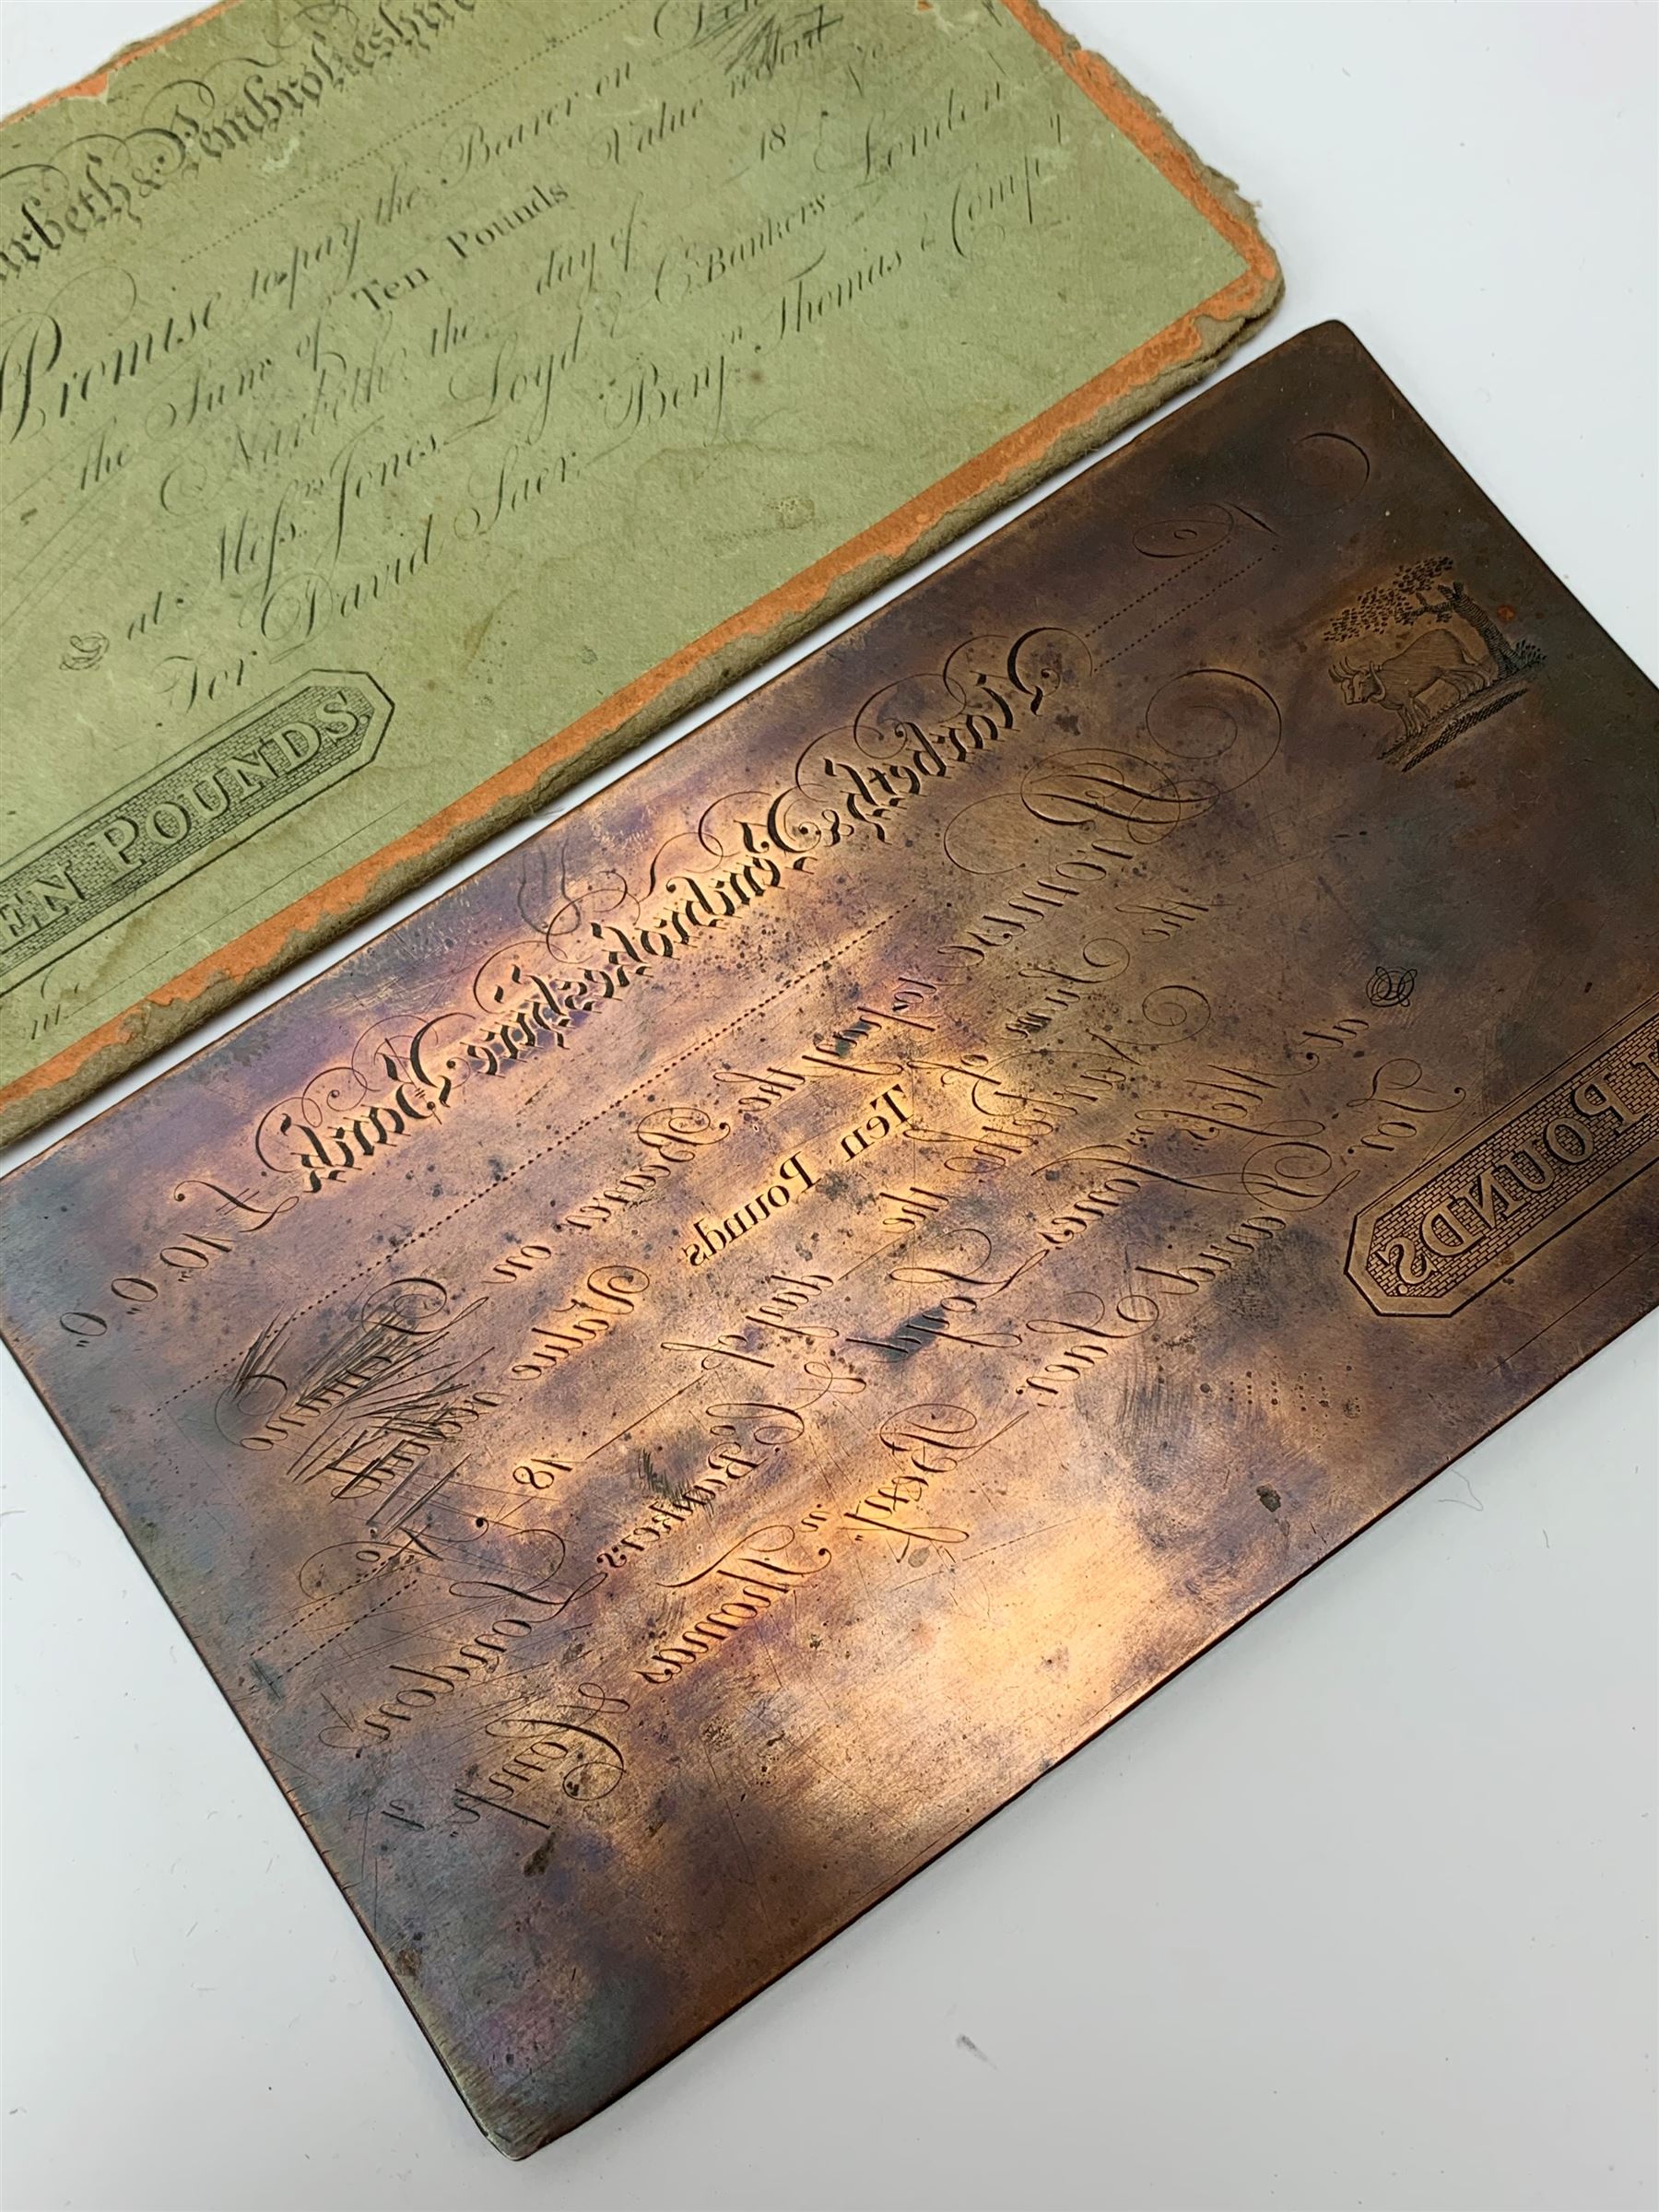 arbeth & Pembrokeshire
Promise to pay the Bearer on
the Sum of Ten Pounds Value rec
Narbeth the day of 18 No
at Messrs Jones Loyd & Co Bankers London
For David Saer Benjn Thomas & Compy
EN POUNDS.
No
Narbeth & Pembrokeshire Bank £ 10,, 0,, 0,,
Promise to pay the Bearer on Demand
the Sum of Ten Pounds Value
Narbeth the day of 18 No
at Messrs Jones Loyd & Co Bankers London
For David Saer Benjn Thomas & Comp
POUNDS.